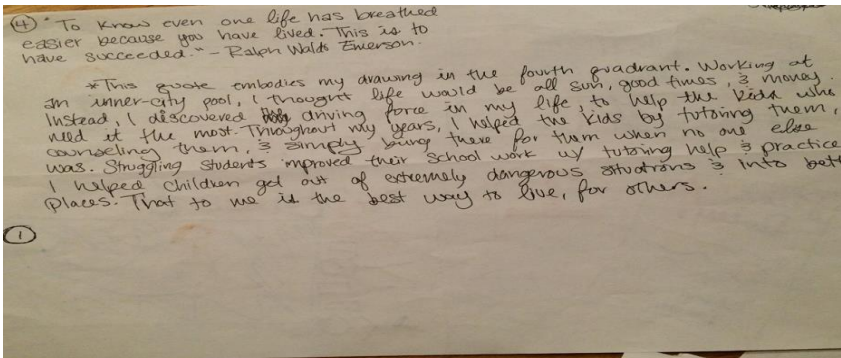 ④ "To know even one life has breathed
easier because you have lived. This is to
have succeeded." - Ralph Waldo Emerson.
*This quote embodies my drawing in the fourth quadrant. Working at
an inner-city pool, I thought life would be all sun, good times, & money.
Instead, I discovered driving force in my life, to help the kids who
need it the most. Throughout my years, I helped the kids by tutoring them,
counseling them, & simply being there for them when no one else
was. Struggling students improved their school work w/ tutoring help & practice
I helped children get out of extremely dangerous situations & into bett
places. That to me is the best way to live, for others.
①